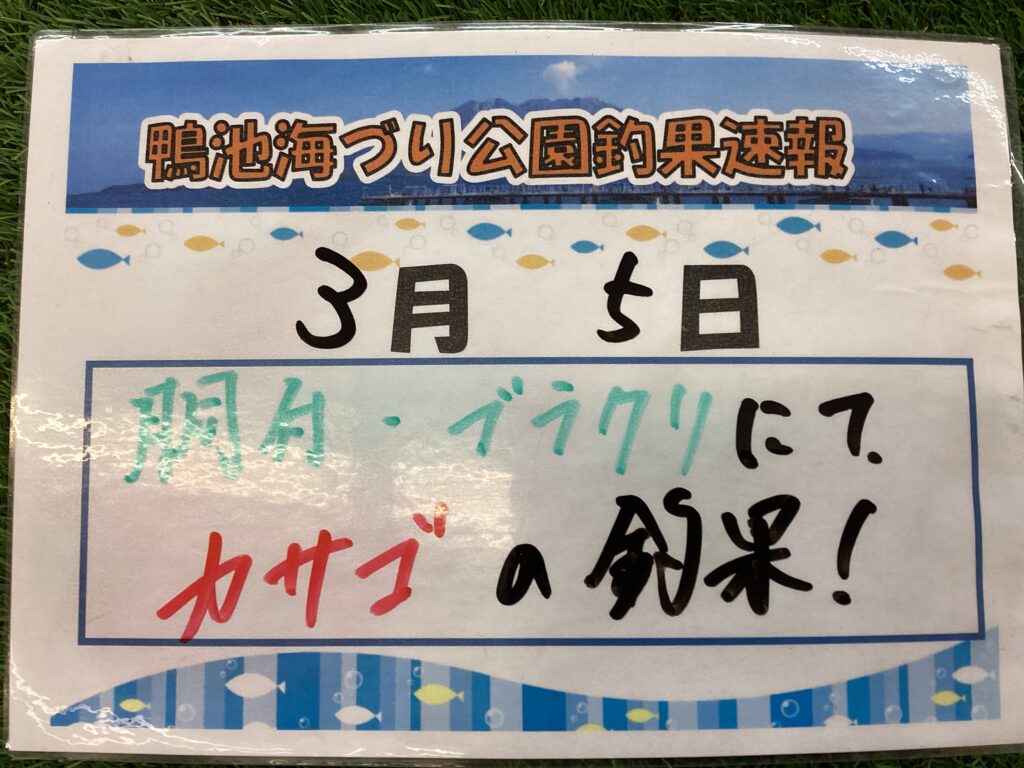 鴨池海づり公園釣果速報
3月 5日
胴付・ブラクリにて、
カサゴの釣果!